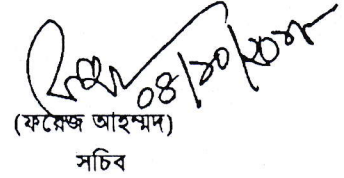 ০৪/১০/২০১৮
(ফয়েজ আহম্মদ)
সচিব